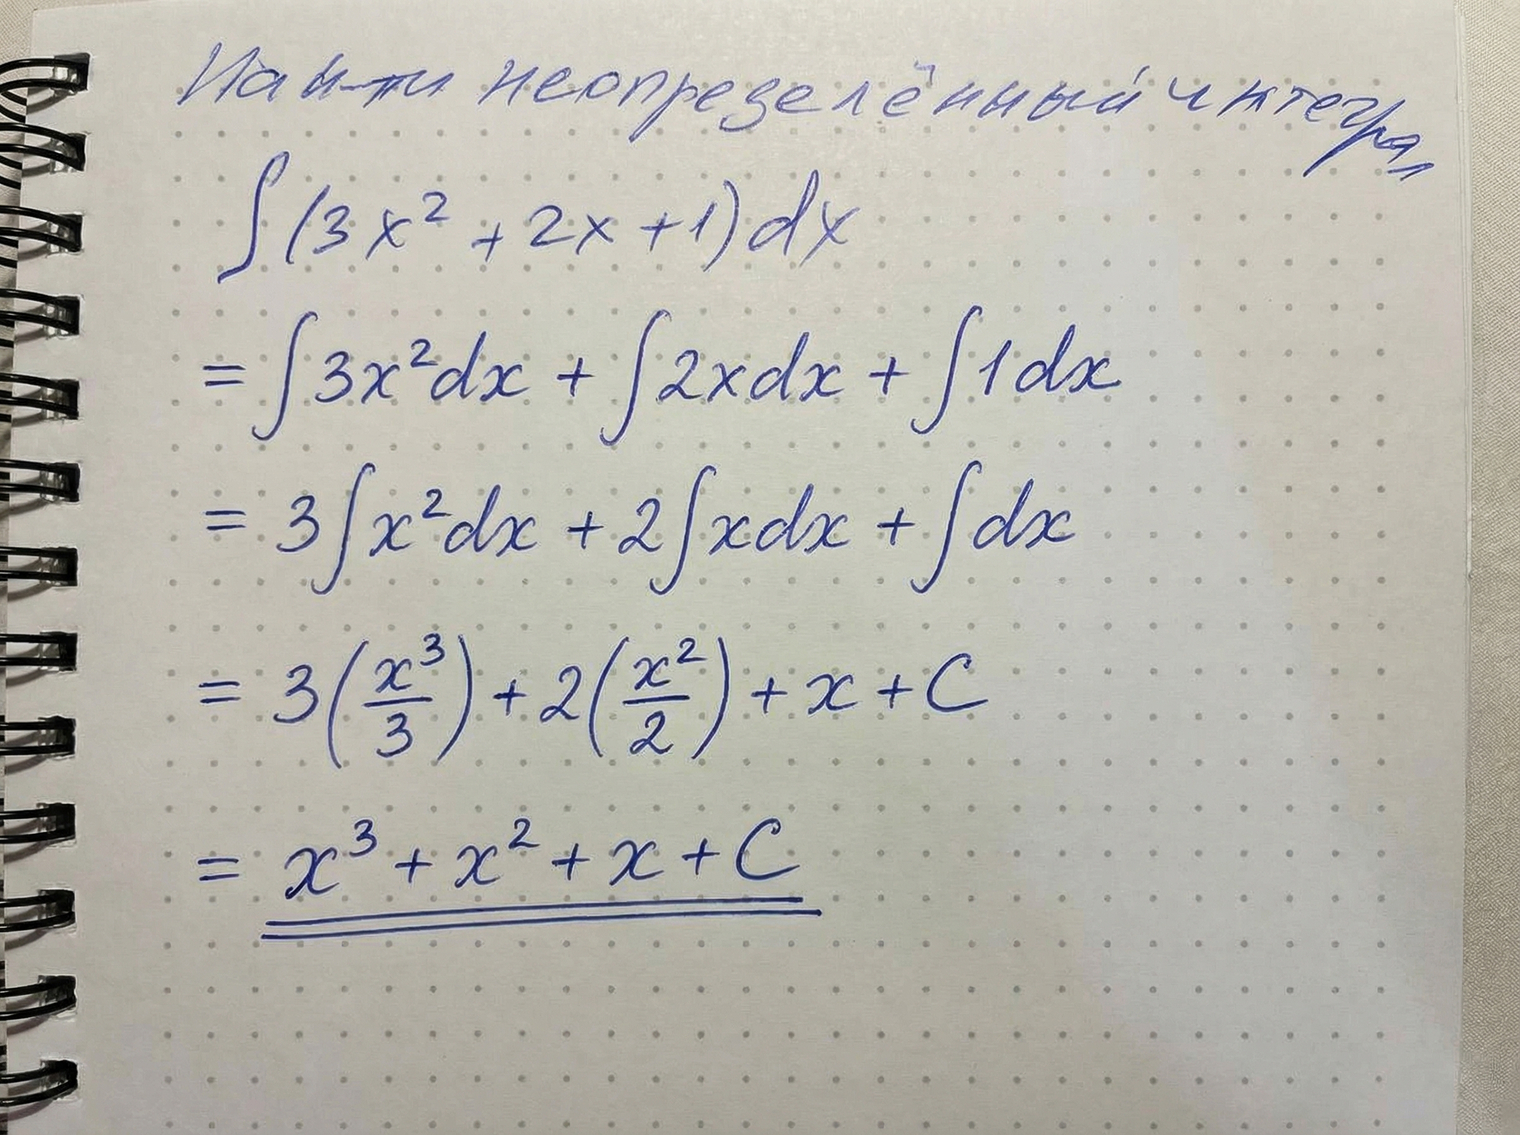 Найти неопределённый интеграл
∫(3x² + 2x + 1)dx
= ∫3x²dx + ∫2xdx + ∫1dx
= 3∫x²dx + 2∫xdx + ∫dx
= 3(x³/3) + 2(x²/2) + x + C
= x³ + x² + x + C